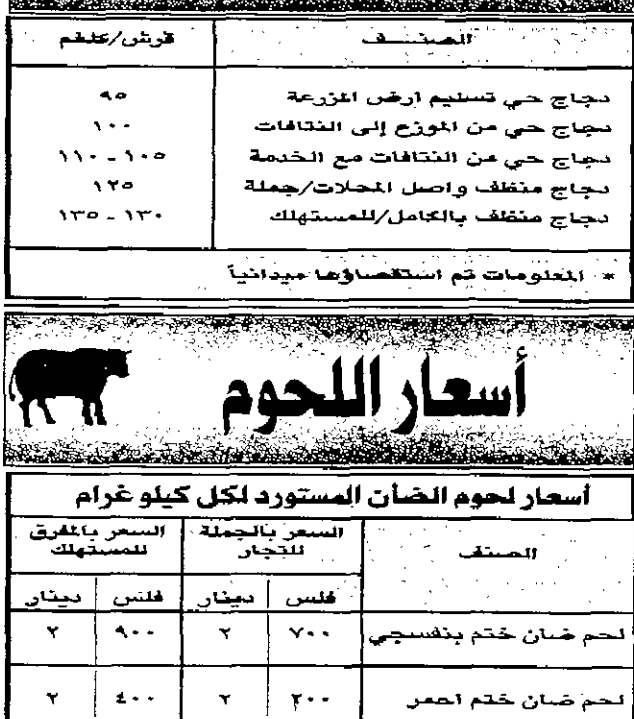 الصنف قرش/كلغم
دجاج حي تسليم ارض المزرعة ٩٥
دجاج حي من الموزع إلى النتافات ١٠٠
دجاج حي من النتافات مع الخدمة ١٠٥ - ١١٠
دجاج منظف واصل المحلات/جملة ١٢٥
دجاج منظف بالكامل/للمستهلك ١٣٠ - ١٣٥
* المعلومات تم استقصاؤها ميدانياً
أسعار اللحوم
أسعار لحوم الضأن المستورد لكل كيلو غرام
الصنف السعر بالجملة للتجار السعر بالمفرق للمستهلك
فلس دينار فلس دينار
لحم ضان ختم بنفسجي ٧٠٠ ٢ ٩٠٠ ٢
لحم ضان ختم احمر ٢٠٠ ٢ ٤٠٠ ٢